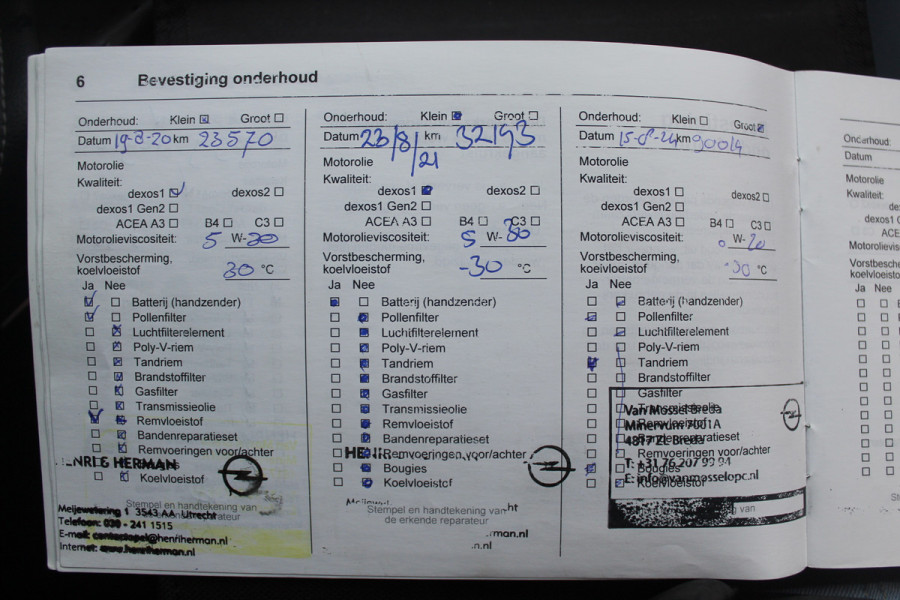 6 Bevestiging onderhoud
Onderhoud: Klein ☒ Groot ☐
Datum 19-8-20 km 23570
Motorolie
Kwaliteit:
dexos1 ☑ dexos2 ☐
dexos1 Gen2 ☐
ACEA A3 ☐ B4 ☐ C3 ☐
Motorolieviscositeit: 5 W-30
Vorstbescherming,
koelvloeistof 30 °C
Ja Nee
Batterij (handzender)
Pollenfilter
Luchtfilterelement
Poly-V-riem
Tandriem
Brandstoffilter
Gasfilter
Transmissieolie
Remvloeistof
Bandenreparatieset
Remvoeringen voor/achter
HENRI & HERMAN
Koelvloeistof
Stempel en handtekening van
Meijewetering 1 3543 AA Utrecht
Telefoon: 030 - 241 1515
E-mail: @henriherman.nl
Internet: www.henriherman.nl
Onderhoud: Klein ☒ Groot ☐
Datum 23/8/21 km 32193
Motorolie
Kwaliteit:
dexos1 ☒ dexos2 ☐
dexos1 Gen2 ☐
ACEA A3 ☐ B4 ☐ C3 ☐
Motorolieviscositeit: 5 W-30
Vorstbescherming,
koelvloeistof -30 °C
Ja Nee
Batterij (handzender)
Pollenfilter
Luchtfilterelement
Poly-V-riem
Tandriem
Brandstoffilter
Gasfilter
Transmissieolie
Remvloeistof
Bandenreparatieset
Remvoeringen voor/achter
Bougies
Koelvloeistof
Stempel en handtekening van
de erkende reparateur
Onderhoud: Klein ☐ Groot ☒
Datum 15-8-24 km 90014
Motorolie
Kwaliteit:
dexos1 ☐ dexos2 ☐
dexos1 Gen2 ☐
ACEA A3 ☐ B4 ☐ C3 ☐
Motorolieviscositeit: 0 W-20
Vorstbescherming,
koelvloeistof °C
Ja Nee
Batterij (handzender)
Pollenfilter
Luchtfilterelement
Poly-V-riem
Tandriem
Brandstoffilter
Gasfilter
Transmissieolie
Van Mossel Breda
Remvloeistof
Minervum 7001A
Bandenreparatieset
4817 ZL Breda
Remvoeringen voor/achter
Bougies
T: +31 76 207 99 94
Koelvloeistof
E: info@vanmosselopc.nl
Onderhoud:
Datum
Motorolie
Kwaliteit:
Ja Nee